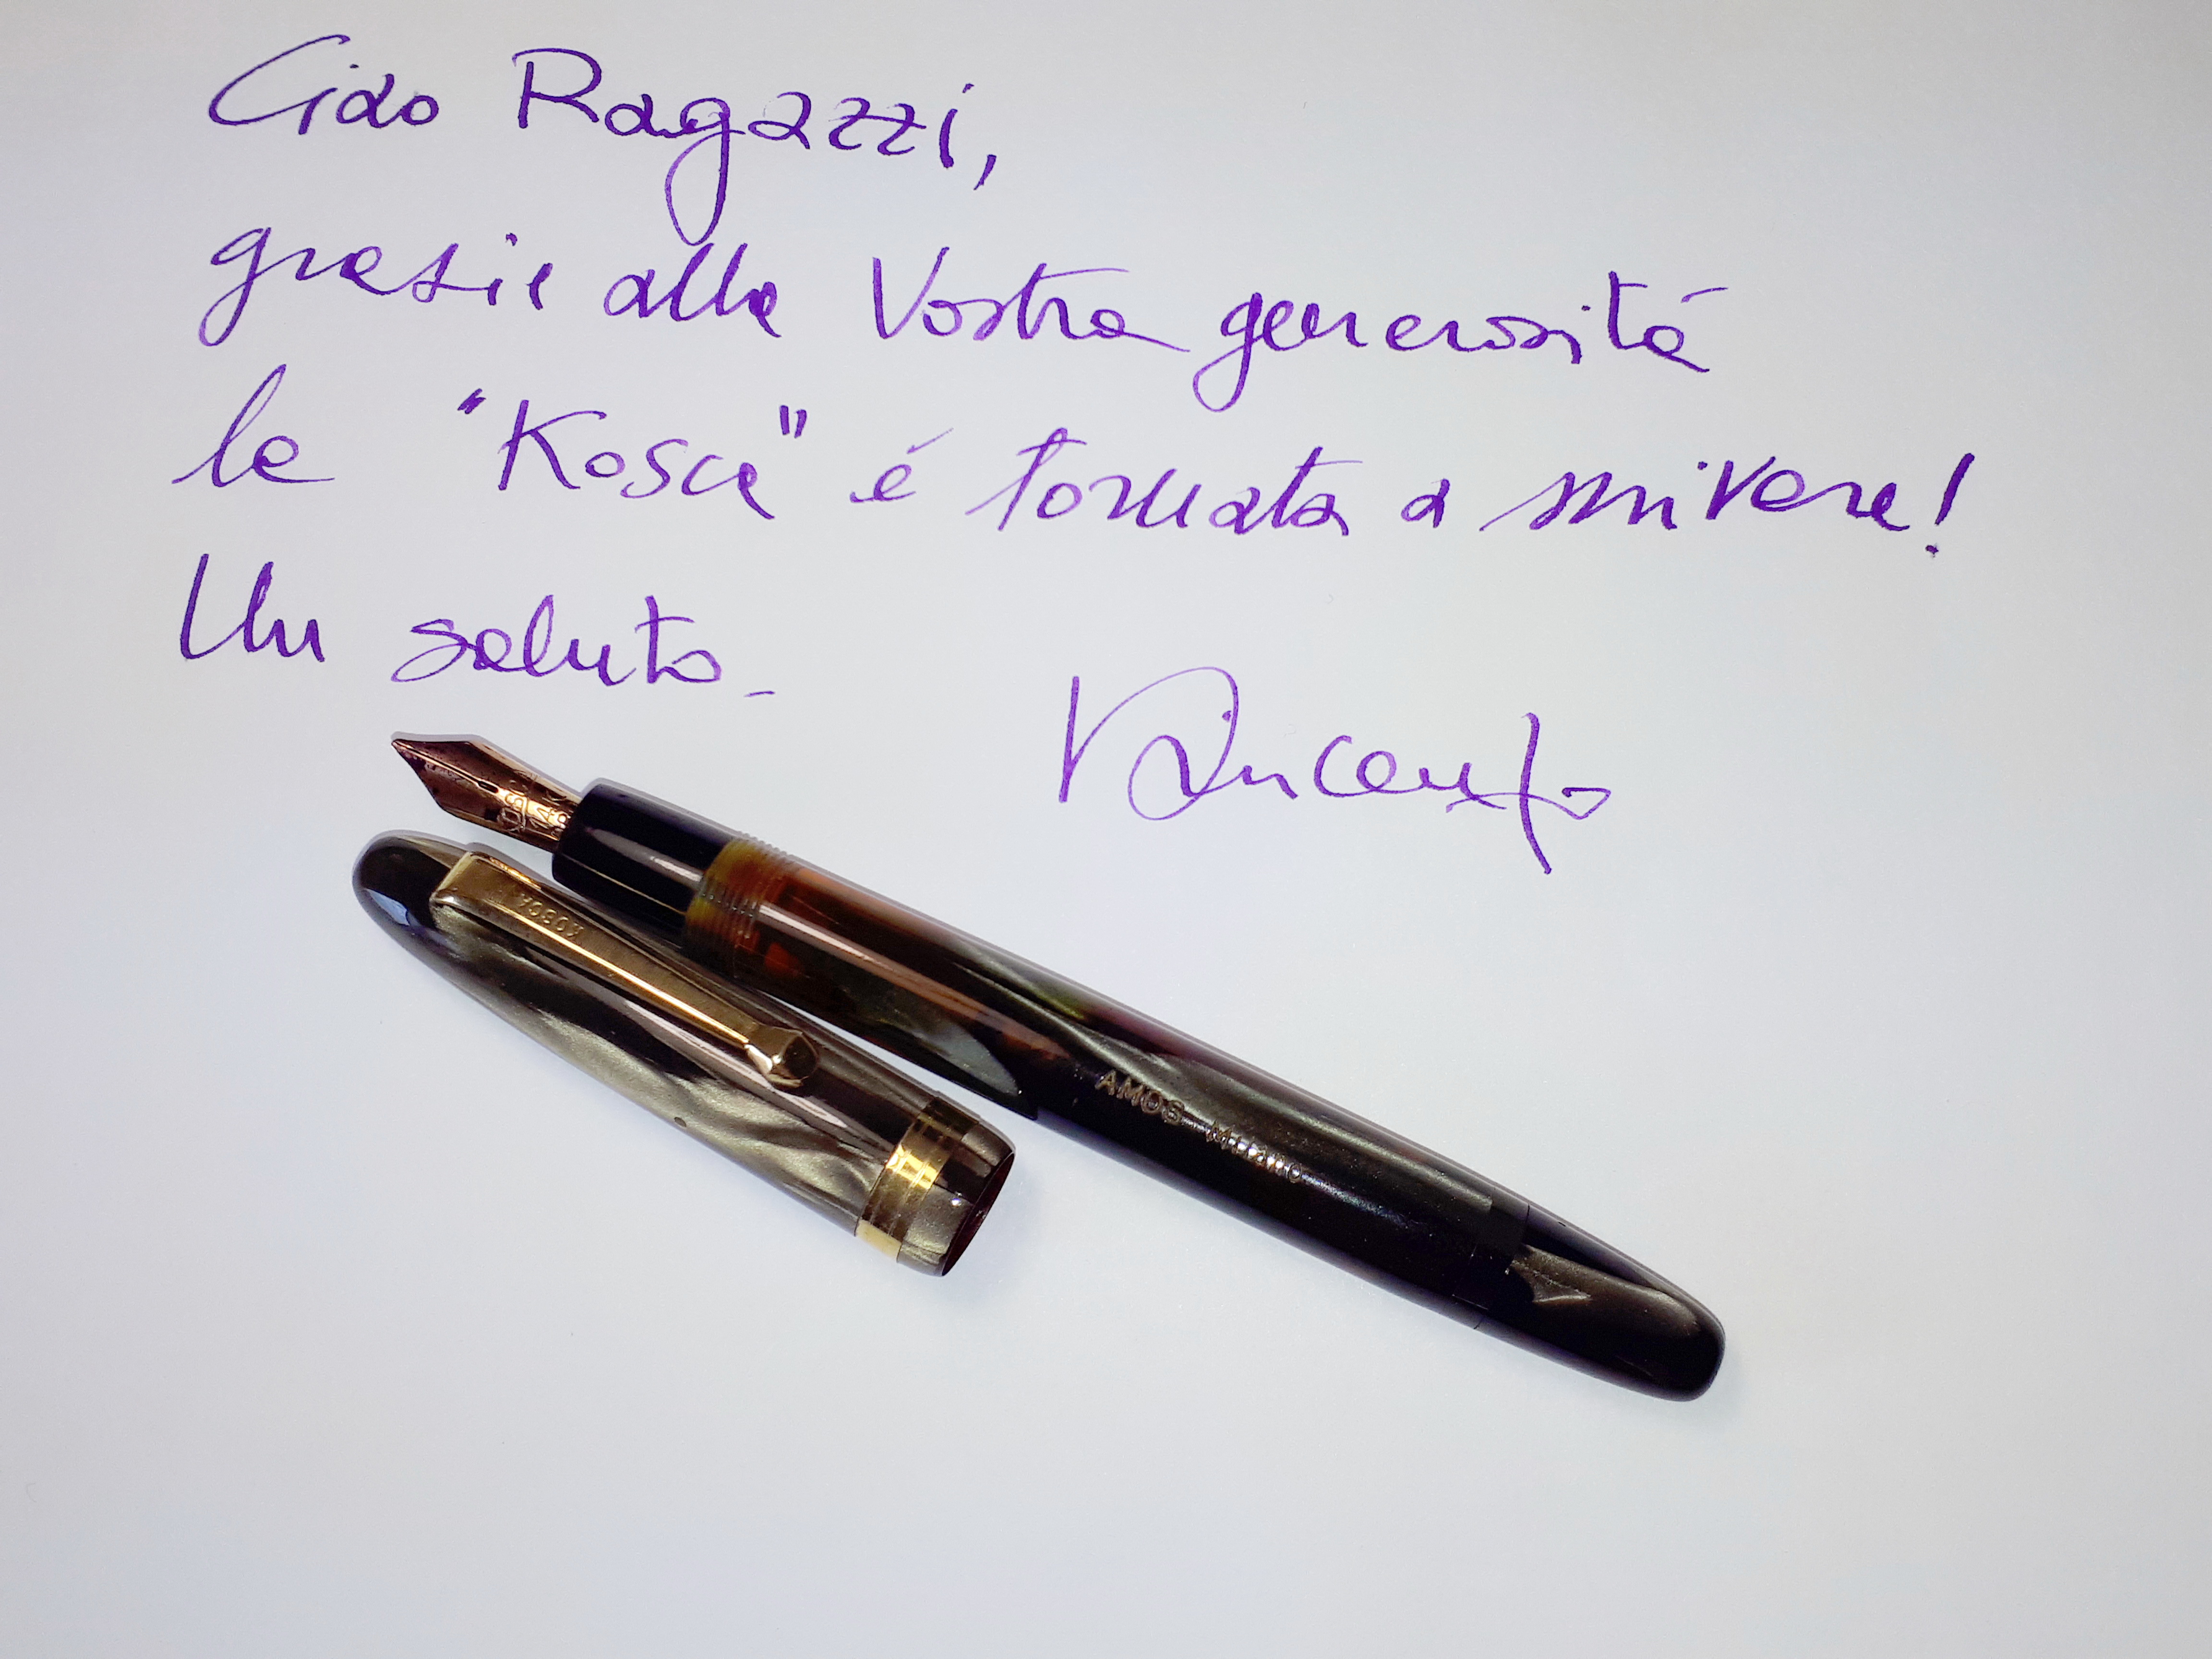 Ciao Ragazzi,
grazie alla Vostra generosità
la "Kosca" è tornata a scrivere!
Un saluto.
Vincenzo
KOSCA
AMOS MILANO